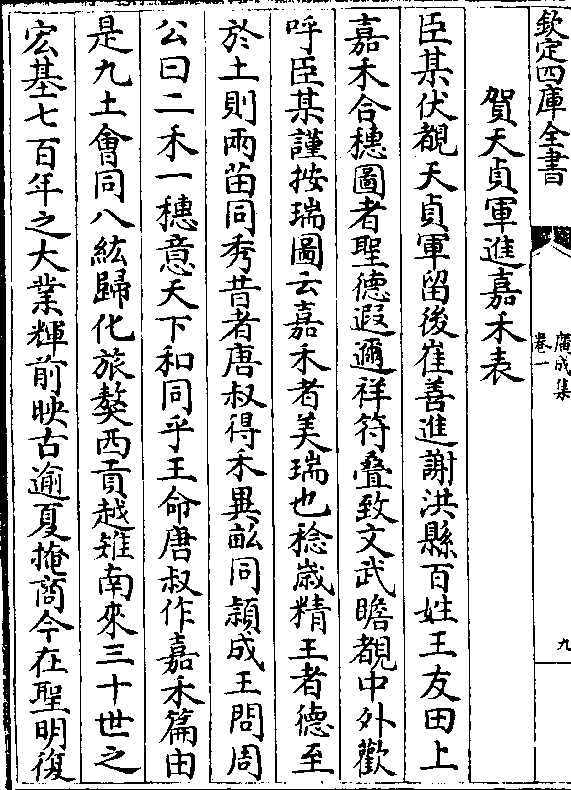 欽定四庫全書
廣成集
卷一
九
賀天貞軍進嘉禾表
臣某伏覩天貞軍留後崔善進謝洪縣百姓王友田上
嘉禾合穗圖者聖德遐邇祥符疊致文武瞻覩中外歡
呼臣某謹按瑞圖云嘉禾者美瑞也稔歲精王者德至
於土則兩苗同秀昔者唐叔得禾異畝同頴成王問周
公曰二禾一穗意天下和同乎王命唐叔作嘉禾篇由
是九土會同八紘歸化旅獒西貢越雉南來三十世之
宏基七百年之大業輝前映古逾夏掩商今在聖明復